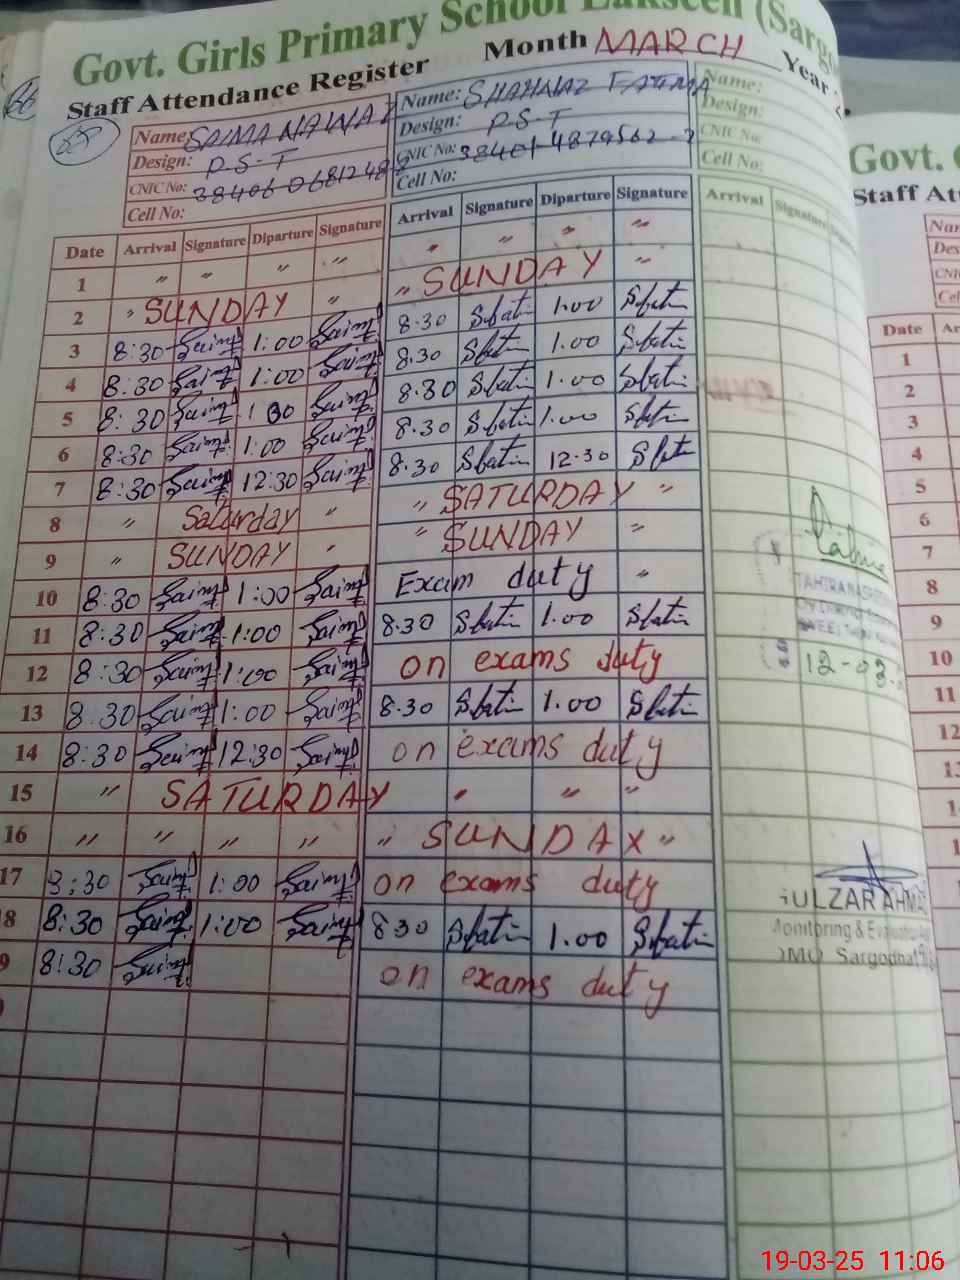 Govt. Girls Primary School Lakseen (Sargo
Staff Attendance Register Month MARCH Year
Name: SAIMA NAWAZ Name: SHAHNAZ FATIMA Name:
Design: P.S.T Design: P.S.T Design:
CNIC No: CNIC No: 38401-4879562- CNIC No:
Cell No: Cell No: Cell No:
Date Arrival Signature Diparture Signature Arrival Signature Diparture Signature Arrival Signature
1 " " " " " " " "
2 " SUNDAY " " SUNDAY "
3 8:30 Saima 1:00 Saima 8.30 Sfatim 1.00 Sfatim
4 8:30 Saima 1:00 Saima 8.30 Sfatim 1.00 Sfatim
5 8:30 Saima 1 00 Saima 8.30 Sfatim 1.00 Sfatim
6 8:30 Saima 1:00 Saima 8.30 Sfatim 1.00 Sfatim
7 8:30 Saima 12:30 Saima 8.30 Sfatim 12.30 Sfatim
8 " Saturday " " SATURDAY "
9 " SUNDAY " " SUNDAY "
10 8:30 Saima 1:00 Saima Exam duty "
11 8:30 Saima 1:00 Saima 8.30 Sfatim 1.00 Sfatim
12 8:30 Saima 1:00 Saima on exams duty
13 8:30 Saima 1:00 Saima 8.30 Sfatim 1.00 Sfatim
14 8:30 Saima 12:30 Saima on exams duty
15 " SATURDAY " " "
16 " " " " " SUNDAY "
17 8:30 Saima 1:00 Saima on exams duty
8 8:30 Saima 1:00 Saima 8.30 Sfatim 1.00 Sfatim
9 8:30 Saima on exams duty
12-03-
GULZAR AHMAD
Monitoring & Evaluation
DMO Sargodha
Govt.
Staff At
Nam
Des
CNIC
Cel
Date Ar
1
2
3
4
5
6
7
8
9
10
11
12
13
1
1
19-03-25 11:06